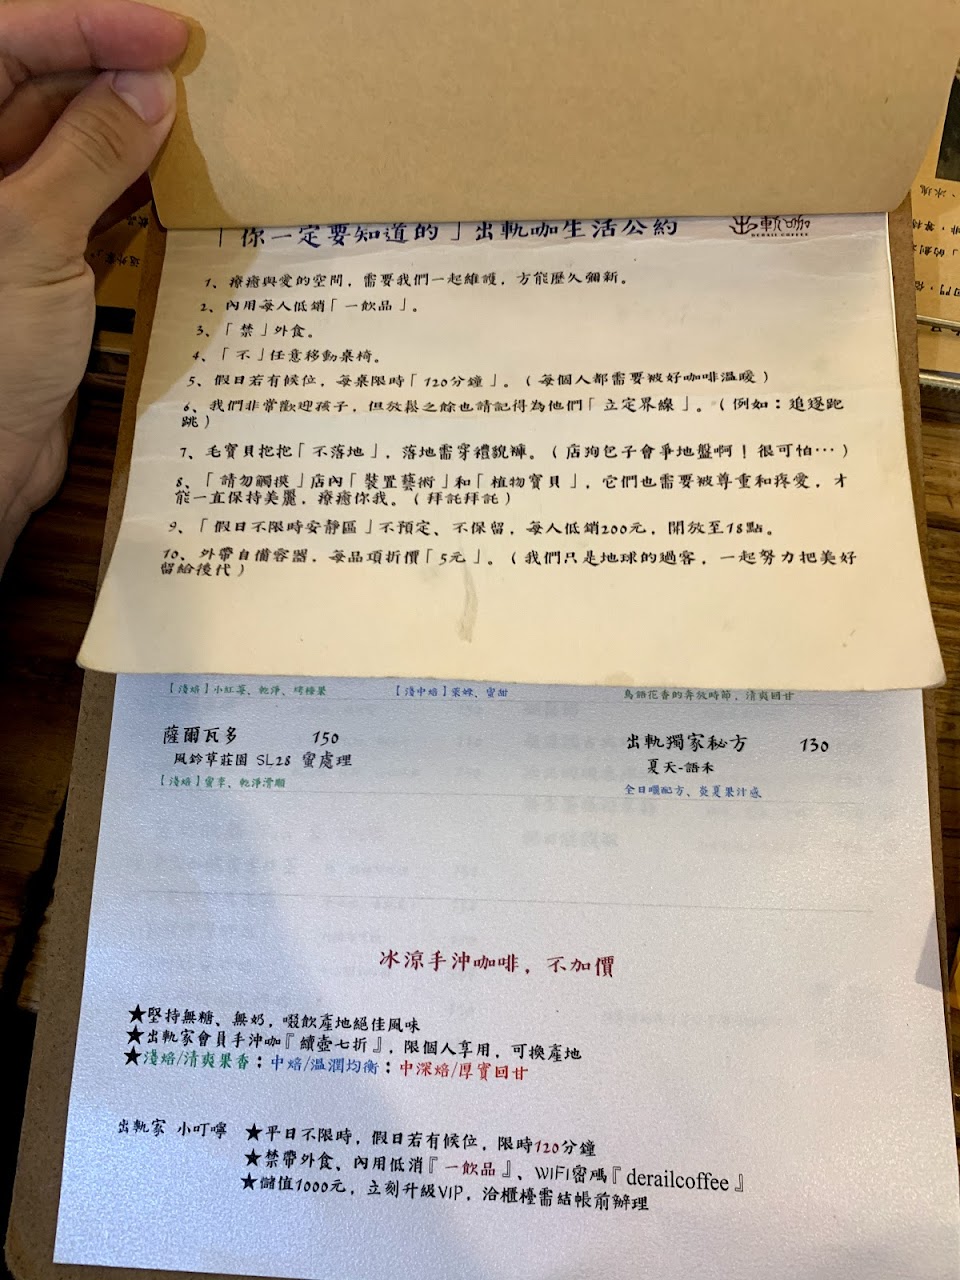 「你一定要知道的」出軌咖生活公約
出軌咖
DERAIL COFFEE
1、療癒與愛的空間，需要我們一起維護，方能歷久彌新。
2、內用每人低銷「一飲品」。
3、「禁」外食。
4、「不」任意移動桌椅。
5、假日若有候位，每桌限時「120分鐘」。（每個人都需要被好咖啡溫暖）
6、我們非常歡迎孩子，但放鬆之餘也請記得為他們「立定界線」。（例如：追逐跑
跳）
7、毛寶貝抱抱「不落地」，落地需穿禮貌褲。（店狗包子會爭地盤啊！很可怕…）
8、「請勿觸摸」店內「裝置藝術」和「植物寶貝」，它們也需要被尊重和疼愛，才
能一直保持美麗，療癒你我。（拜託拜託）
9、「假日不限時安靜區」不預定、不保留，每人低銷200元，開放至18點。
10、外帶自備容器，每品項折價「5元」。（我們只是地球的過客，一起努力把美好
留給後代）
【淺焙】小紅莓、乾淨、烤榛果
【淺中焙】栗娣、蜜甜
鳥語花香的奔放時節，清爽回甘
薩爾瓦多 150
風鈴草莊園 SL28 蜜處理
【淺焙】蜜李、乾淨滑順
出軌獨家秘方 130
夏天-語禾
全日曬配方、炎夏果汁感
冰涼手沖咖啡，不加價
★堅持無糖、無奶，啜飲產地絕佳風味
★出軌家會員手沖咖『續壺七折』，限個人享用，可換產地
★淺焙/清爽果香；中焙/溫潤均衡；中深焙/厚實回甘
出軌家 小叮嚀 ★平日不限時，假日若有候位，限時120分鐘
★禁帶外食、內用低消『一飲品』、WIFI密碼『derailcoffee』
★儲值1000元，立刻升級VIP，洽櫃檯需結帳前辦理